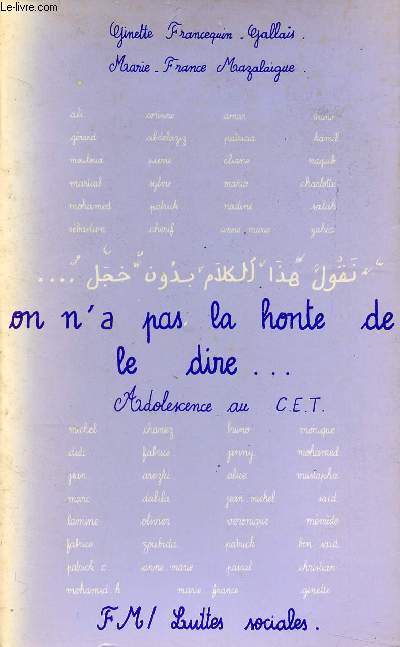 Le-livre.com
Ginette Francequin-Gallais.
Marie-France Mazalaigue.
ali corinne omar bruno
gérard abdelaziz patricia hamid
mouloud pierre eliane naguib
martial sylvie mario charlotte
mohamed patrick nadine salah
sébastien cherif anne marie
نَقُولُ هَذَا الكَلَامَ بِدُونِ خَجَلٍ ....
on n'a pas la honte de
le dire...
Adolescence au C.E.T.
michel bruno monique
didi fabrice jenny mohamed
jean arezki alice mustapha
marc dalila jean michel saïd
lamine olivier veronique
fabrice zoubida patrick ben saïd
patrick c anne marie pascal christian
mohamed h marie-france ginette
FM/ Luttes sociales.